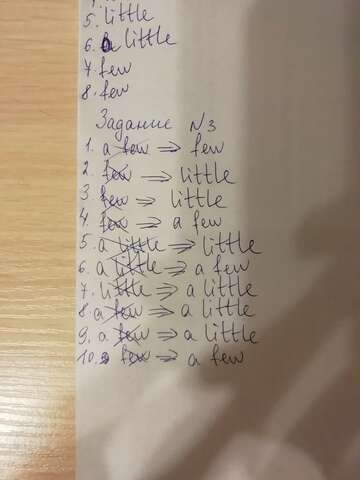 5. little
6. a little
7. few
8. few
Задание №3
1. a few => few
2. few => little
3. few => little
4. few => a few
5. a little => little
6. a little => a few
7. little => a little
8. a few => a little
9. a few => a little
10. few => a few